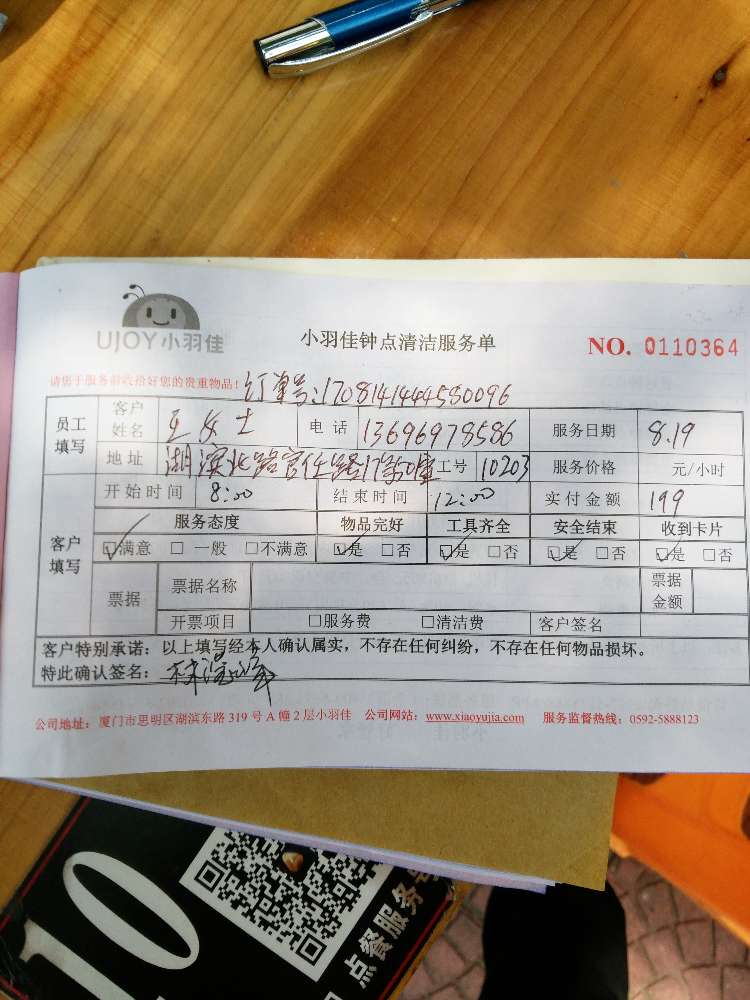 UJOY小羽佳
小羽佳钟点清洁服务单
NO. 0110364
请您于服务前收拾好您的贵重物品!
订单号:1708141444580096
员工填写 客户姓名 王女士 电话 13696978586 服务日期 8.19
地址 湖滨北路官任路 工号 10203 服务价格 元/小时
开始时间 8:00 结束时间 12:00 实付金额 199
客户填写 服务态度 物品完好 工具齐全 安全结束 收到卡片
☑满意 □一般 □不满意 ☑是 □否 ☑是 □否 ☑是 □否 ☑是 □否
票据 票据名称 票据金额
开票项目 □服务费 □清洁费 客户签名
客户特别承诺:以上填写经本人确认属实,不存在任何纠纷,不存在任何物品损坏。
特此确认签名:
公司地址:厦门市思明区湖滨东路 319 号 A 幢 2 层小羽佳 公司网站:www.xiaoyujia.com 服务监督热线:0592-5888123
10
点餐服务